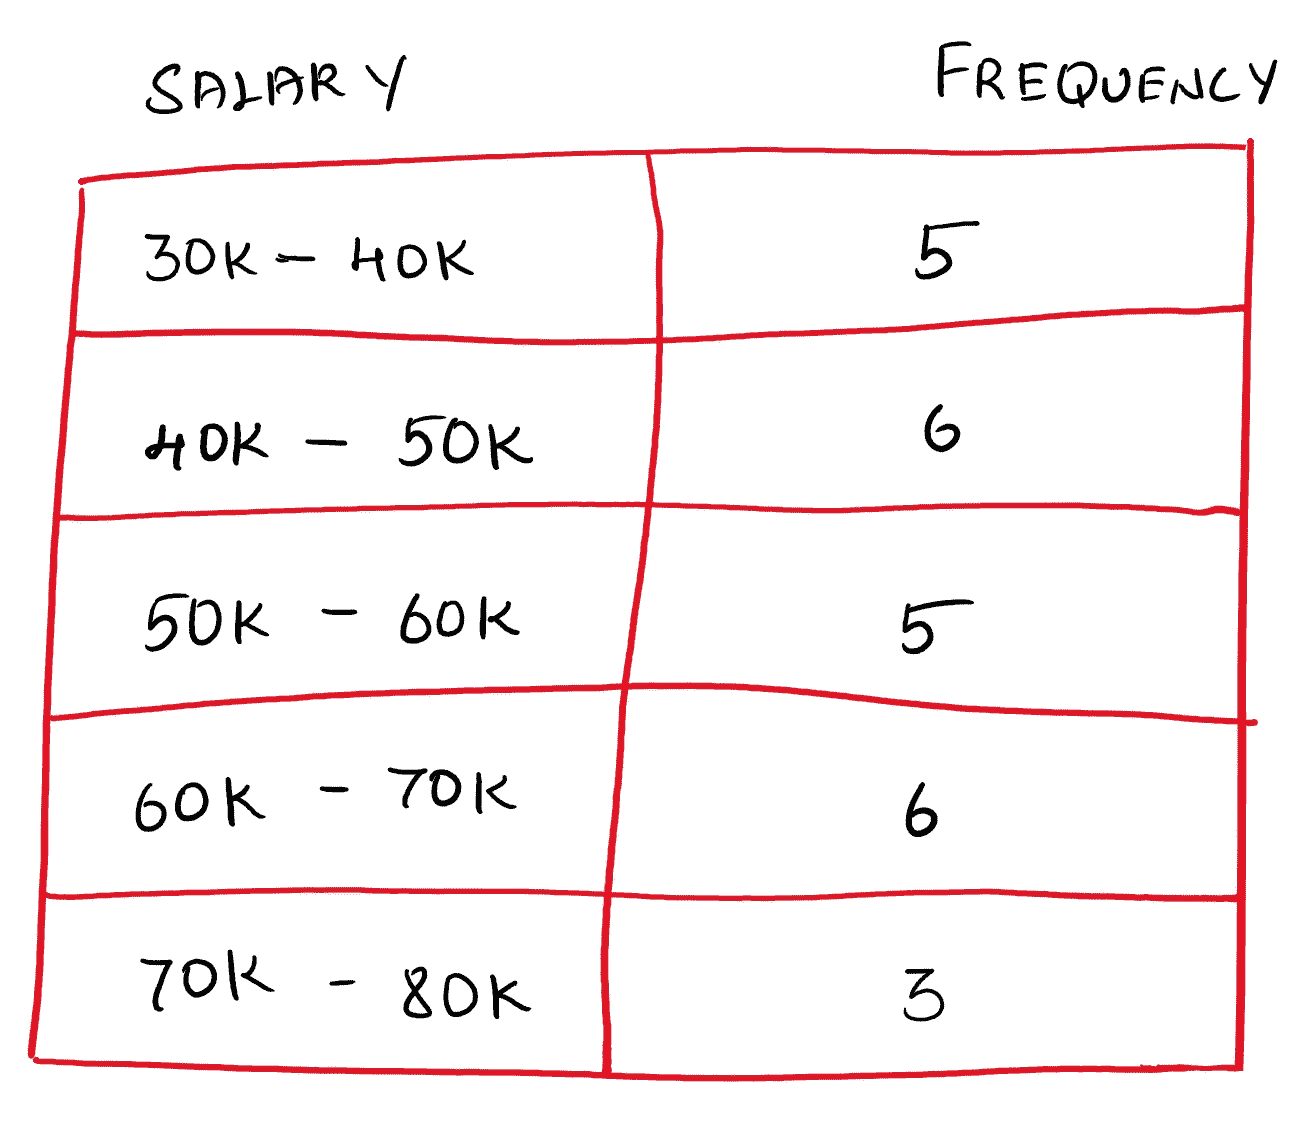 SALARY FREQUENCY
30K - 40K 5
40K - 50K 6
50K - 60K 5
60K - 70K 6
70K - 80K 3